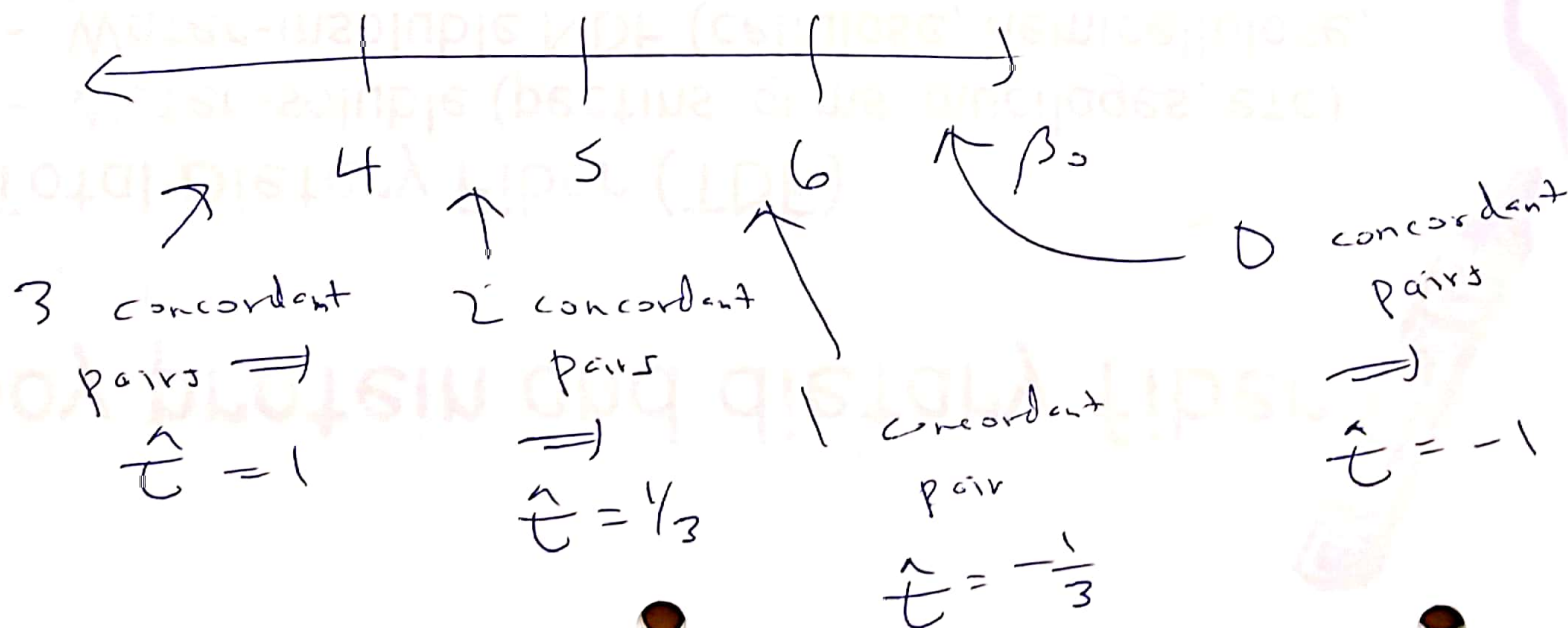 4 5 6 β₀
3 concordant
pairs ⟹
τ̂ = 1
2 concordant
pairs
⟹
τ̂ = 1/3
1 concordant
pair
τ̂ = -1/3
0 concordant
pairs
⟹
τ̂ = -1